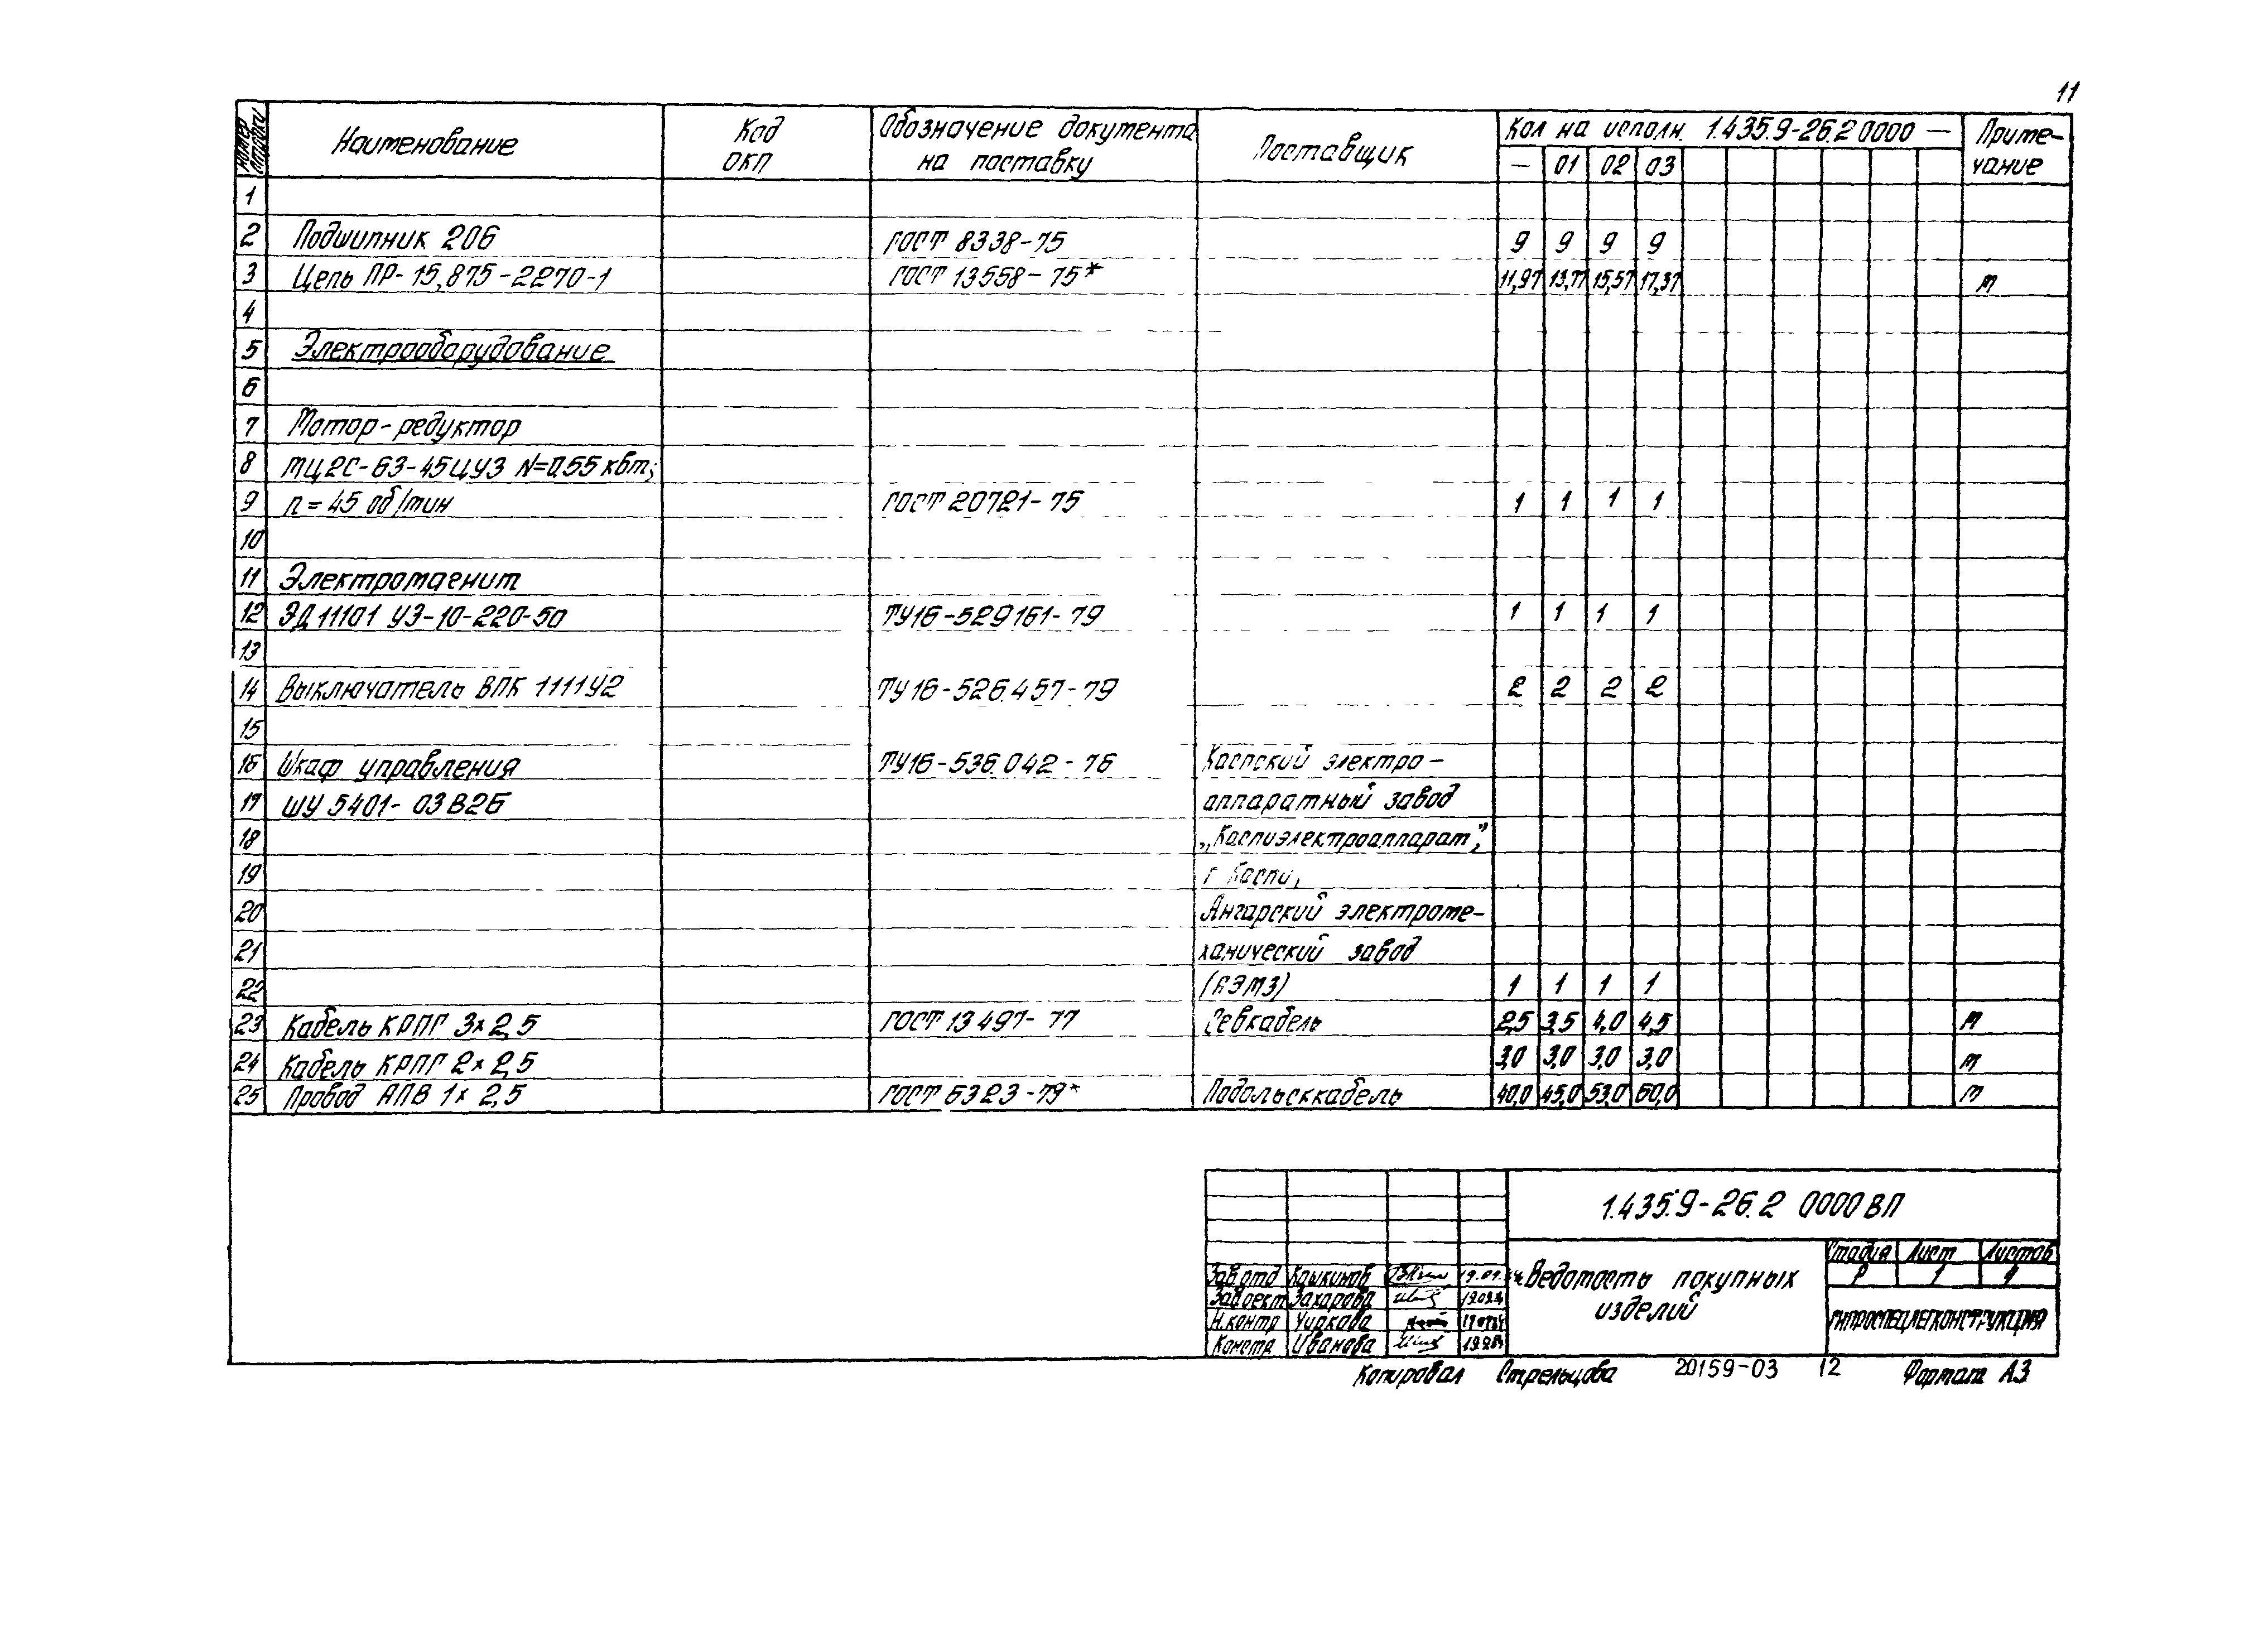 11
Номер строки
Наименование
Код ОКП
Обозначение документа на поставку
Поставщик
Кол на исполн. 1.435.9-26.2 0000 —
— 01 02 03
Приме-
чание
1
2 Подшипник 206 ГОСТ 8338-75 9 9 9 9
3 Цепь ПР-15,875-2270-1 ГОСТ 13558-75* 11,97 13,77 15,57 17,37 м
4
5 Электрооборудование
6
7 Мотор-редуктор
8 МЦ2С-63-45ЦУ3 N=0.55 квт;
9 n=45 об/мин ГОСТ 20721-75 1 1 1 1
10
11 Электромагнит
12 ЭД11101 У3-10-220-50 ТУ16-529161-79 1 1 1 1
13
14 Выключатель ВПК 1111У2 ТУ16-526.457-79 2 2 2 2
15
16 Шкаф управления ТУ16-536.042-76 Каспский электро-
17 ШУ 5401-03В2Б аппаратный завод
18 „Каспиэлектроаппарат",
19 г Каспи,
20 Ангарский электроме-
21 ханический завод
22 (АЭМЗ) 1 1 1 1
23 Кабель КРПГ 3×2,5 ГОСТ 13497-77 Севкабель 2,5 3,5 4,0 4,5 м
24 Кабель КРПГ 2×2,5 3,0 3,0 3,0 3,0 м
25 Провод АПВ 1×2,5 ГОСТ 6323-79* Подольсккабель 40,0 45,0 53,0 60,0 м
1.435.9-26.2 0000 ВП
Ведомость покупных
изделий
Стадия Лист Листов
Р 1 4
ГИПРОСПЕЦЛЕГКОНСТРУКЦИЯ
Зав.отд Кашкинов
Зав сект Захарова
Н.контр Чиркова
Констр Иванова
Копировал Стрельцова 20159-03 12 Формат А3